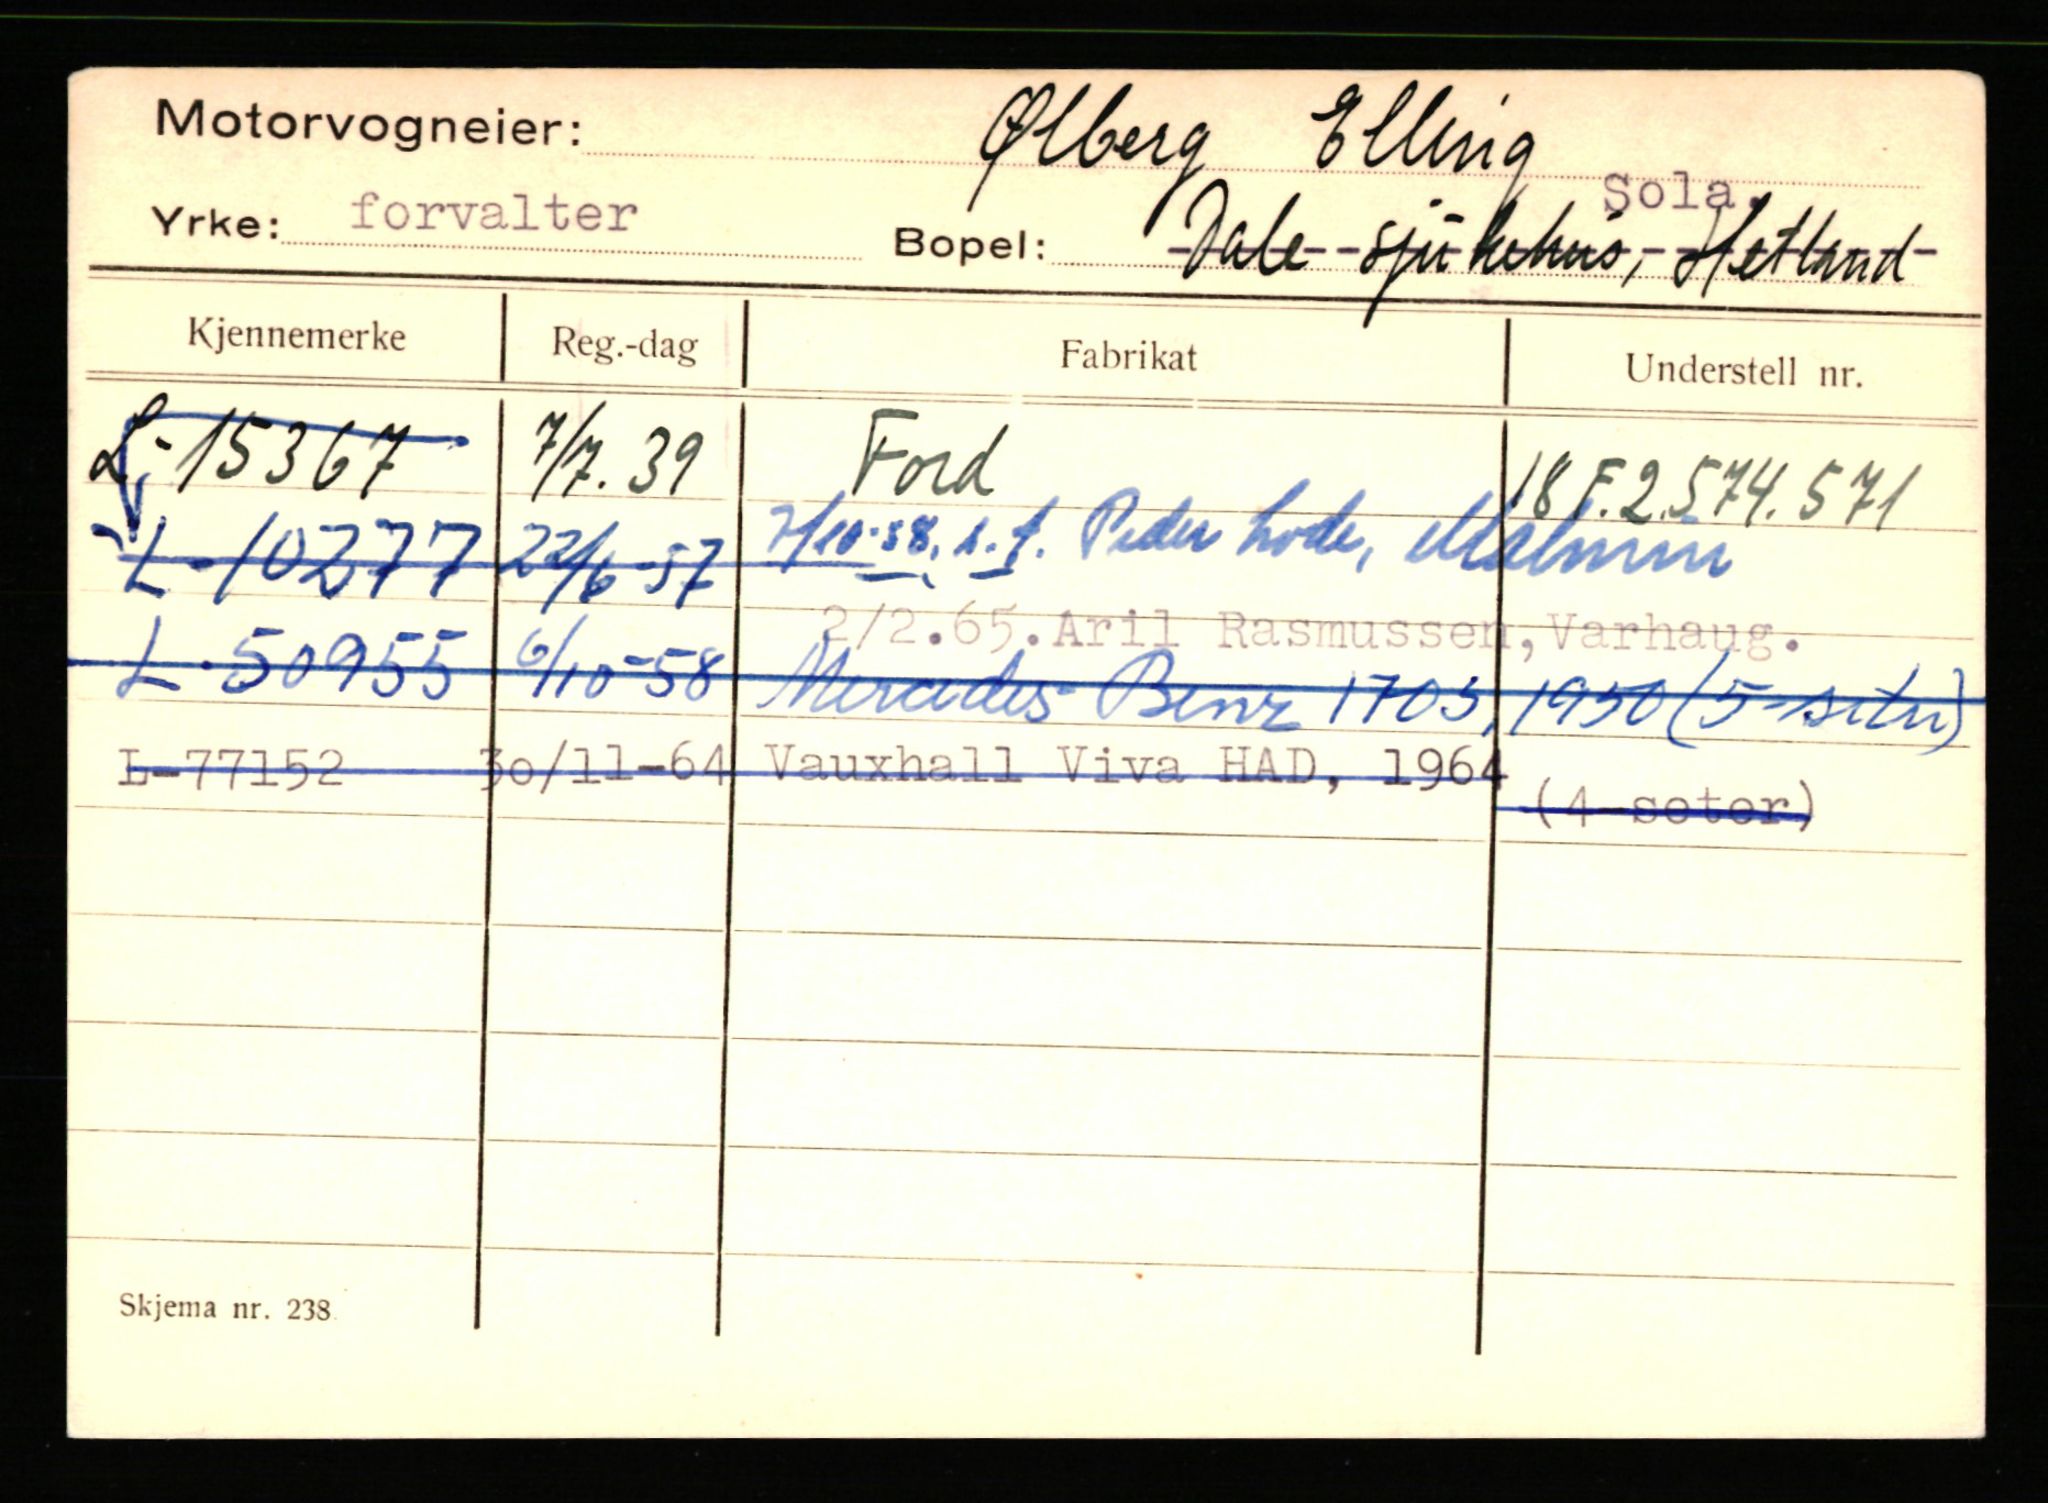 Motorvogneier: Ølberg Elling
Sola.
Yrke: forvalter Bopel: Dale sjukehus, Hetland
Kjennemerke Reg.-dag Fabrikat Understell nr.
L-15367 7/7.39 Ford 18 F.2.574.571
L-10277 22/6-57 7/10-58, s.f. Peder Lode, Malmin
2/2.65.Aril Rasmussen,Varhaug.
L-50955 6/10-58 Mercedes-Benz 170S, 1950 (5-seter)
L-77152 30/11-64 Vauxhall Viva HAD, 1964
(4-seter)
Skjema nr. 238